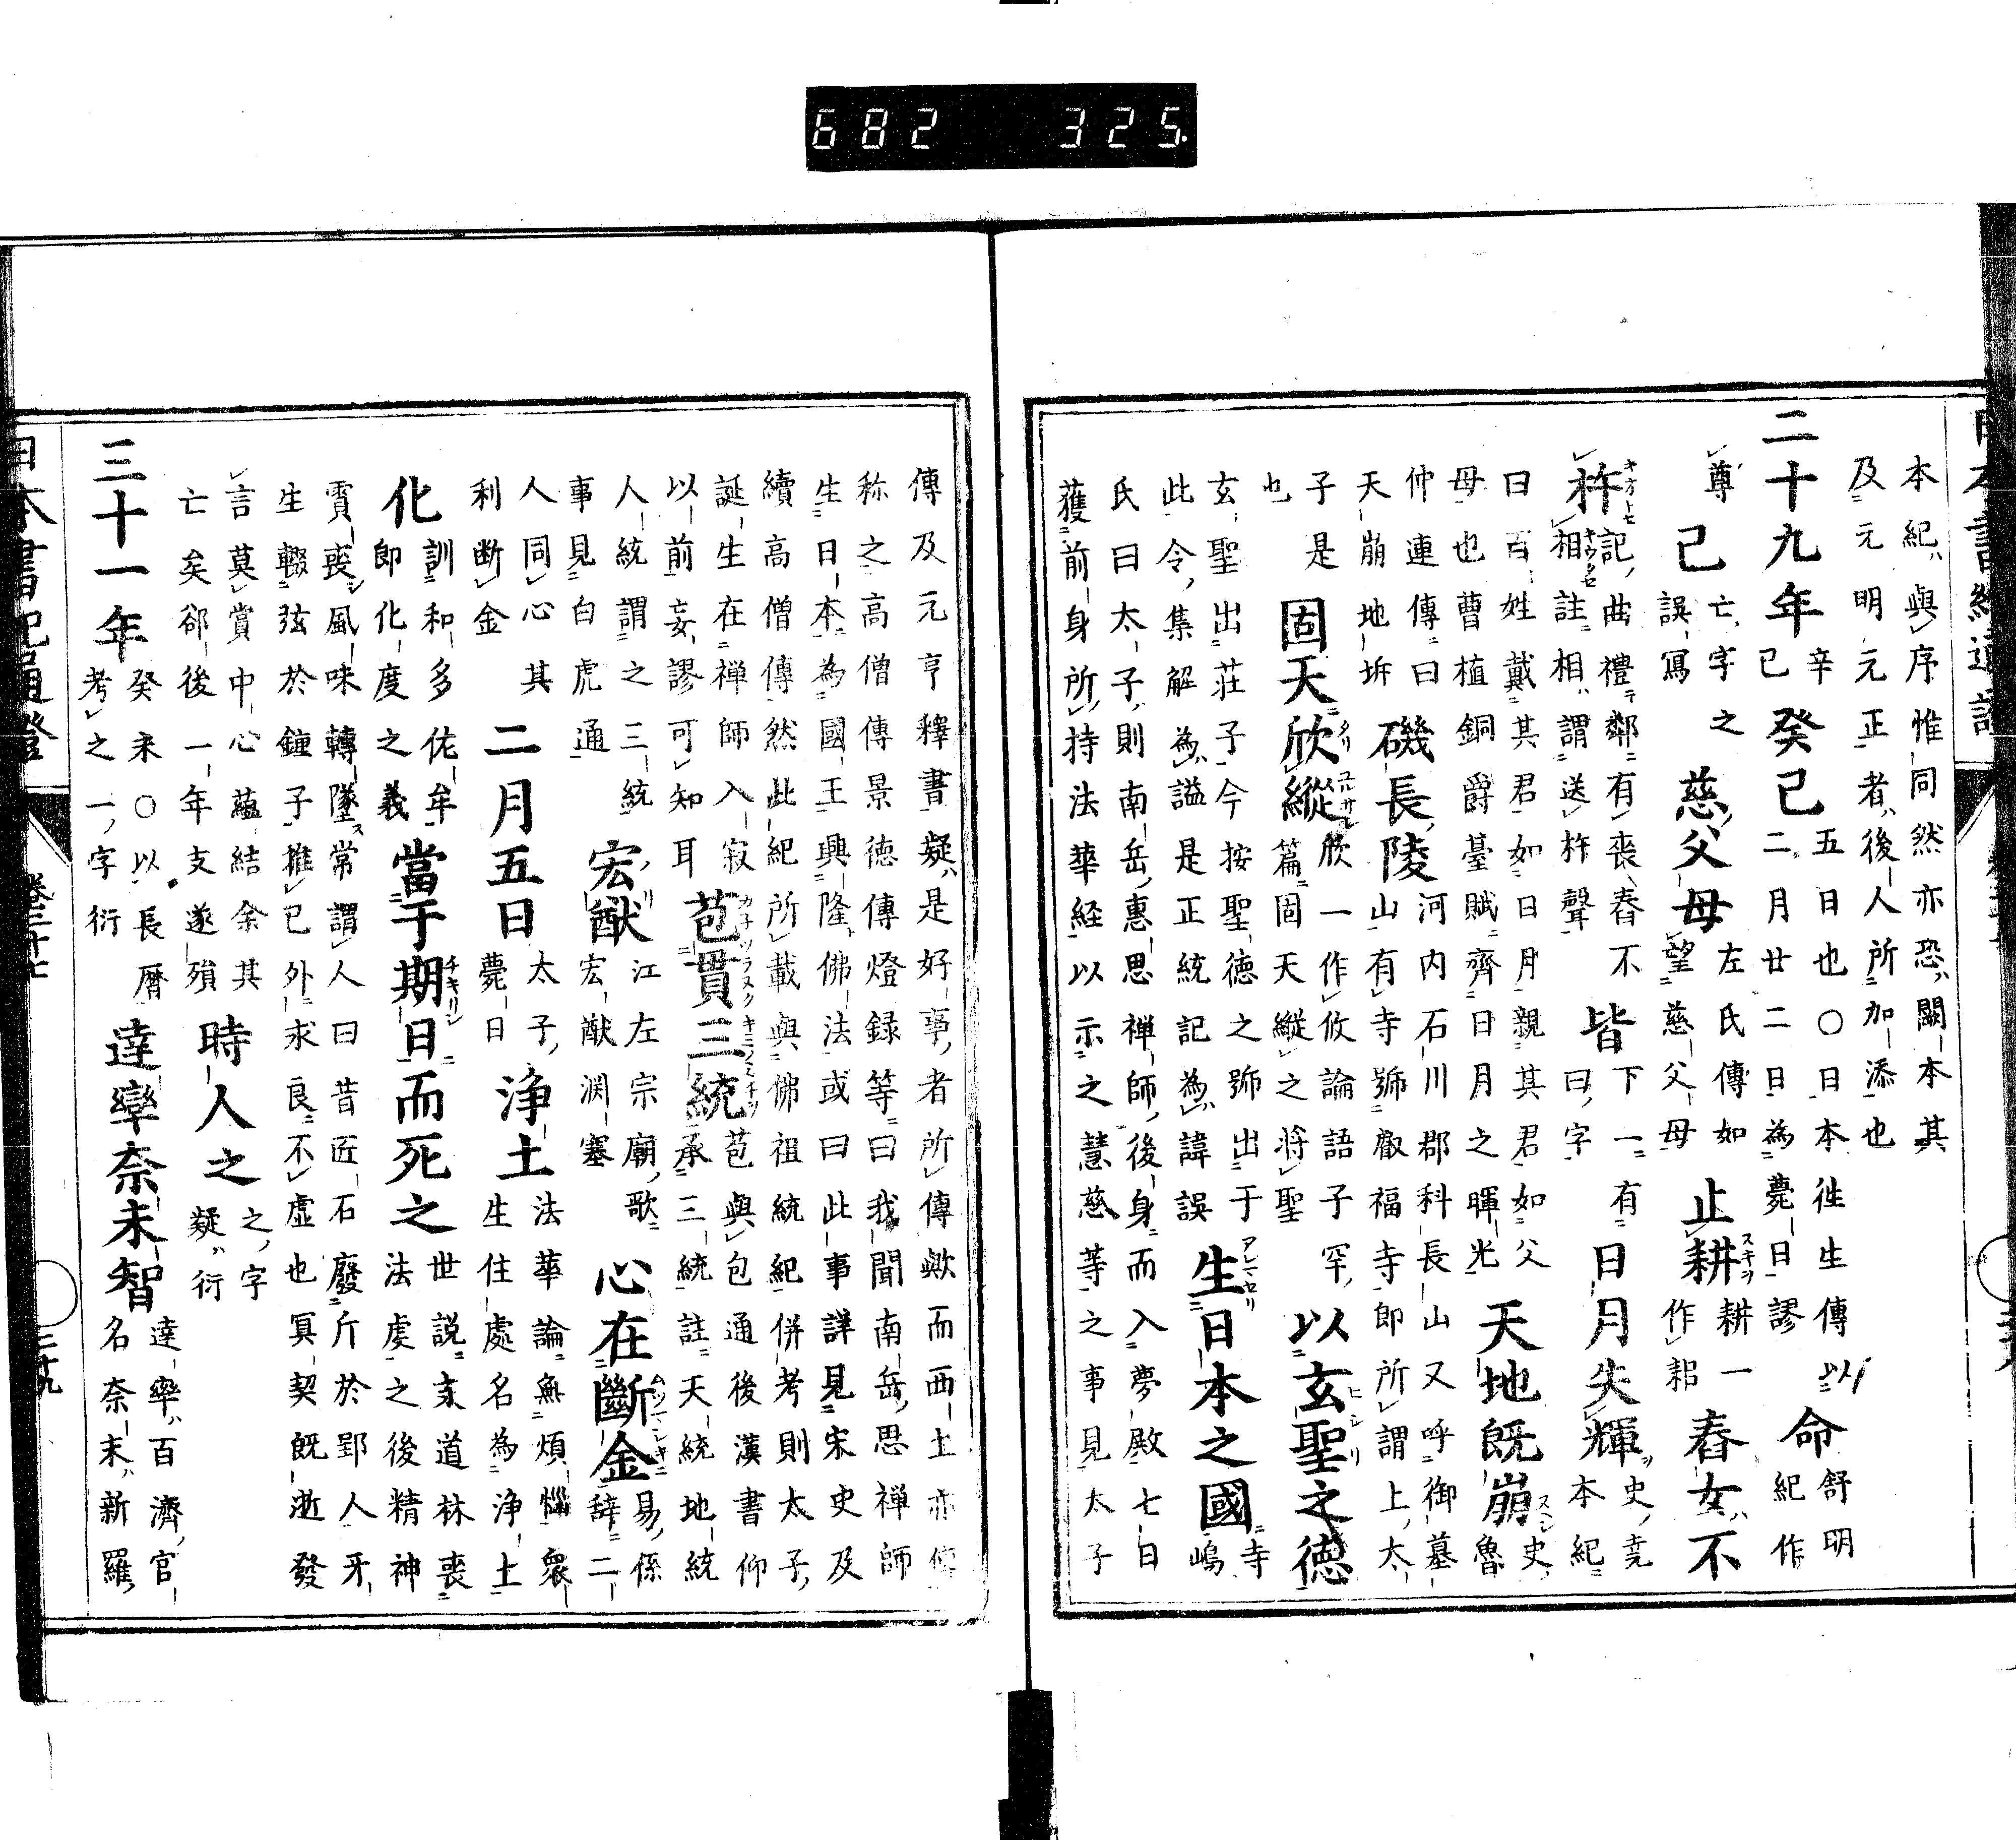 682 325.
本紀與序惟同然亦恐闕本其
及元明元正者後人所加添也
二十九年辛已癸已五日也〇日本往生傳以二月廿二日為薨日謬命舒明紀作
尊己亡字之誤寫慈父母左氏傳如望慈父母止耕耕一作耜舂女不
杵記曲禮鄰有喪舂不相註相謂送杵聲皆下一有曰字日月失輝史堯本紀
曰百姓戴其君如日月親其君如父母也曹植銅爵臺賦齊日月之暉光天地既崩史魯
仲連傳曰天崩地坼磯長陵河内石川郡科長山又呼御墓山有寺號叡福寺即所謂上太
子是也固天欣縱欣一作攸論語子罕篇固天縱之將聖以玄聖之德
玄聖出莊子今按聖德之號出于此令集解為謚是正統記為諱誤生日本之國寺嶋
氏曰太子則南岳惠思禅師後身而入夢殿七日
獲前身所持法華経以示之慧慈等之事見太子
傳及元亨釋書疑是好事者所傳歟而西土亦傳
称之高僧傳景徳傳燈録等曰我聞南岳思禅師
生日本為國王興隆佛法或曰此事詳見宋史及
續高僧傳然此紀所載與佛祖統紀併考則太子
誕生在禅師入寂以前妄謬可知耳苞貫三統苞與包通後漢書仰承三統註天統地統
人統謂之三統事見白虎通宏猷江左宗廟歌宏猷渊塞心在斷金易係辞二
人同心其利断金二月五日太子薨日浄土法華論無煩惱衆生住處名為浄土
化訓和多佗牟即化度之義當于期日而死之世説支道林喪法虔之後精神
霣喪風味轉墜常謂人曰昔匠石廢斤於郢人牙
生輟弦於鐘子推已外求良不虚也冥契既逝發
言莫賞中心蘊結余其亡矣郤後一年支遂殞時人之之字疑衍
三十一年癸未〇以長暦考之一字衍達率奈未智達率百濟官名奈末新羅
日本書紀通證 卷二十七 二十九